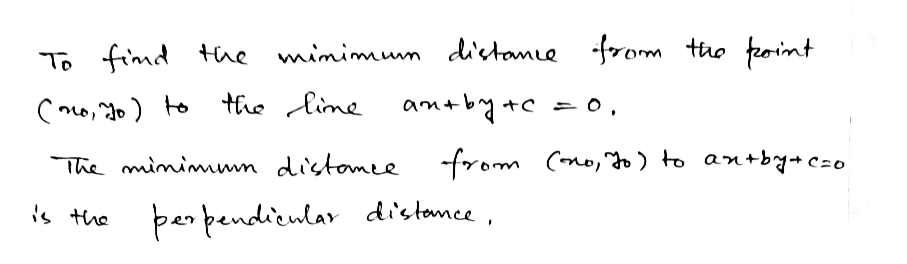 To find the minimum distance from the point
(x₀, y₀) to the line ax+by+c = 0.
The minimum distance from (x₀, y₀) to ax+by+c=0
is the perpendicular distance.